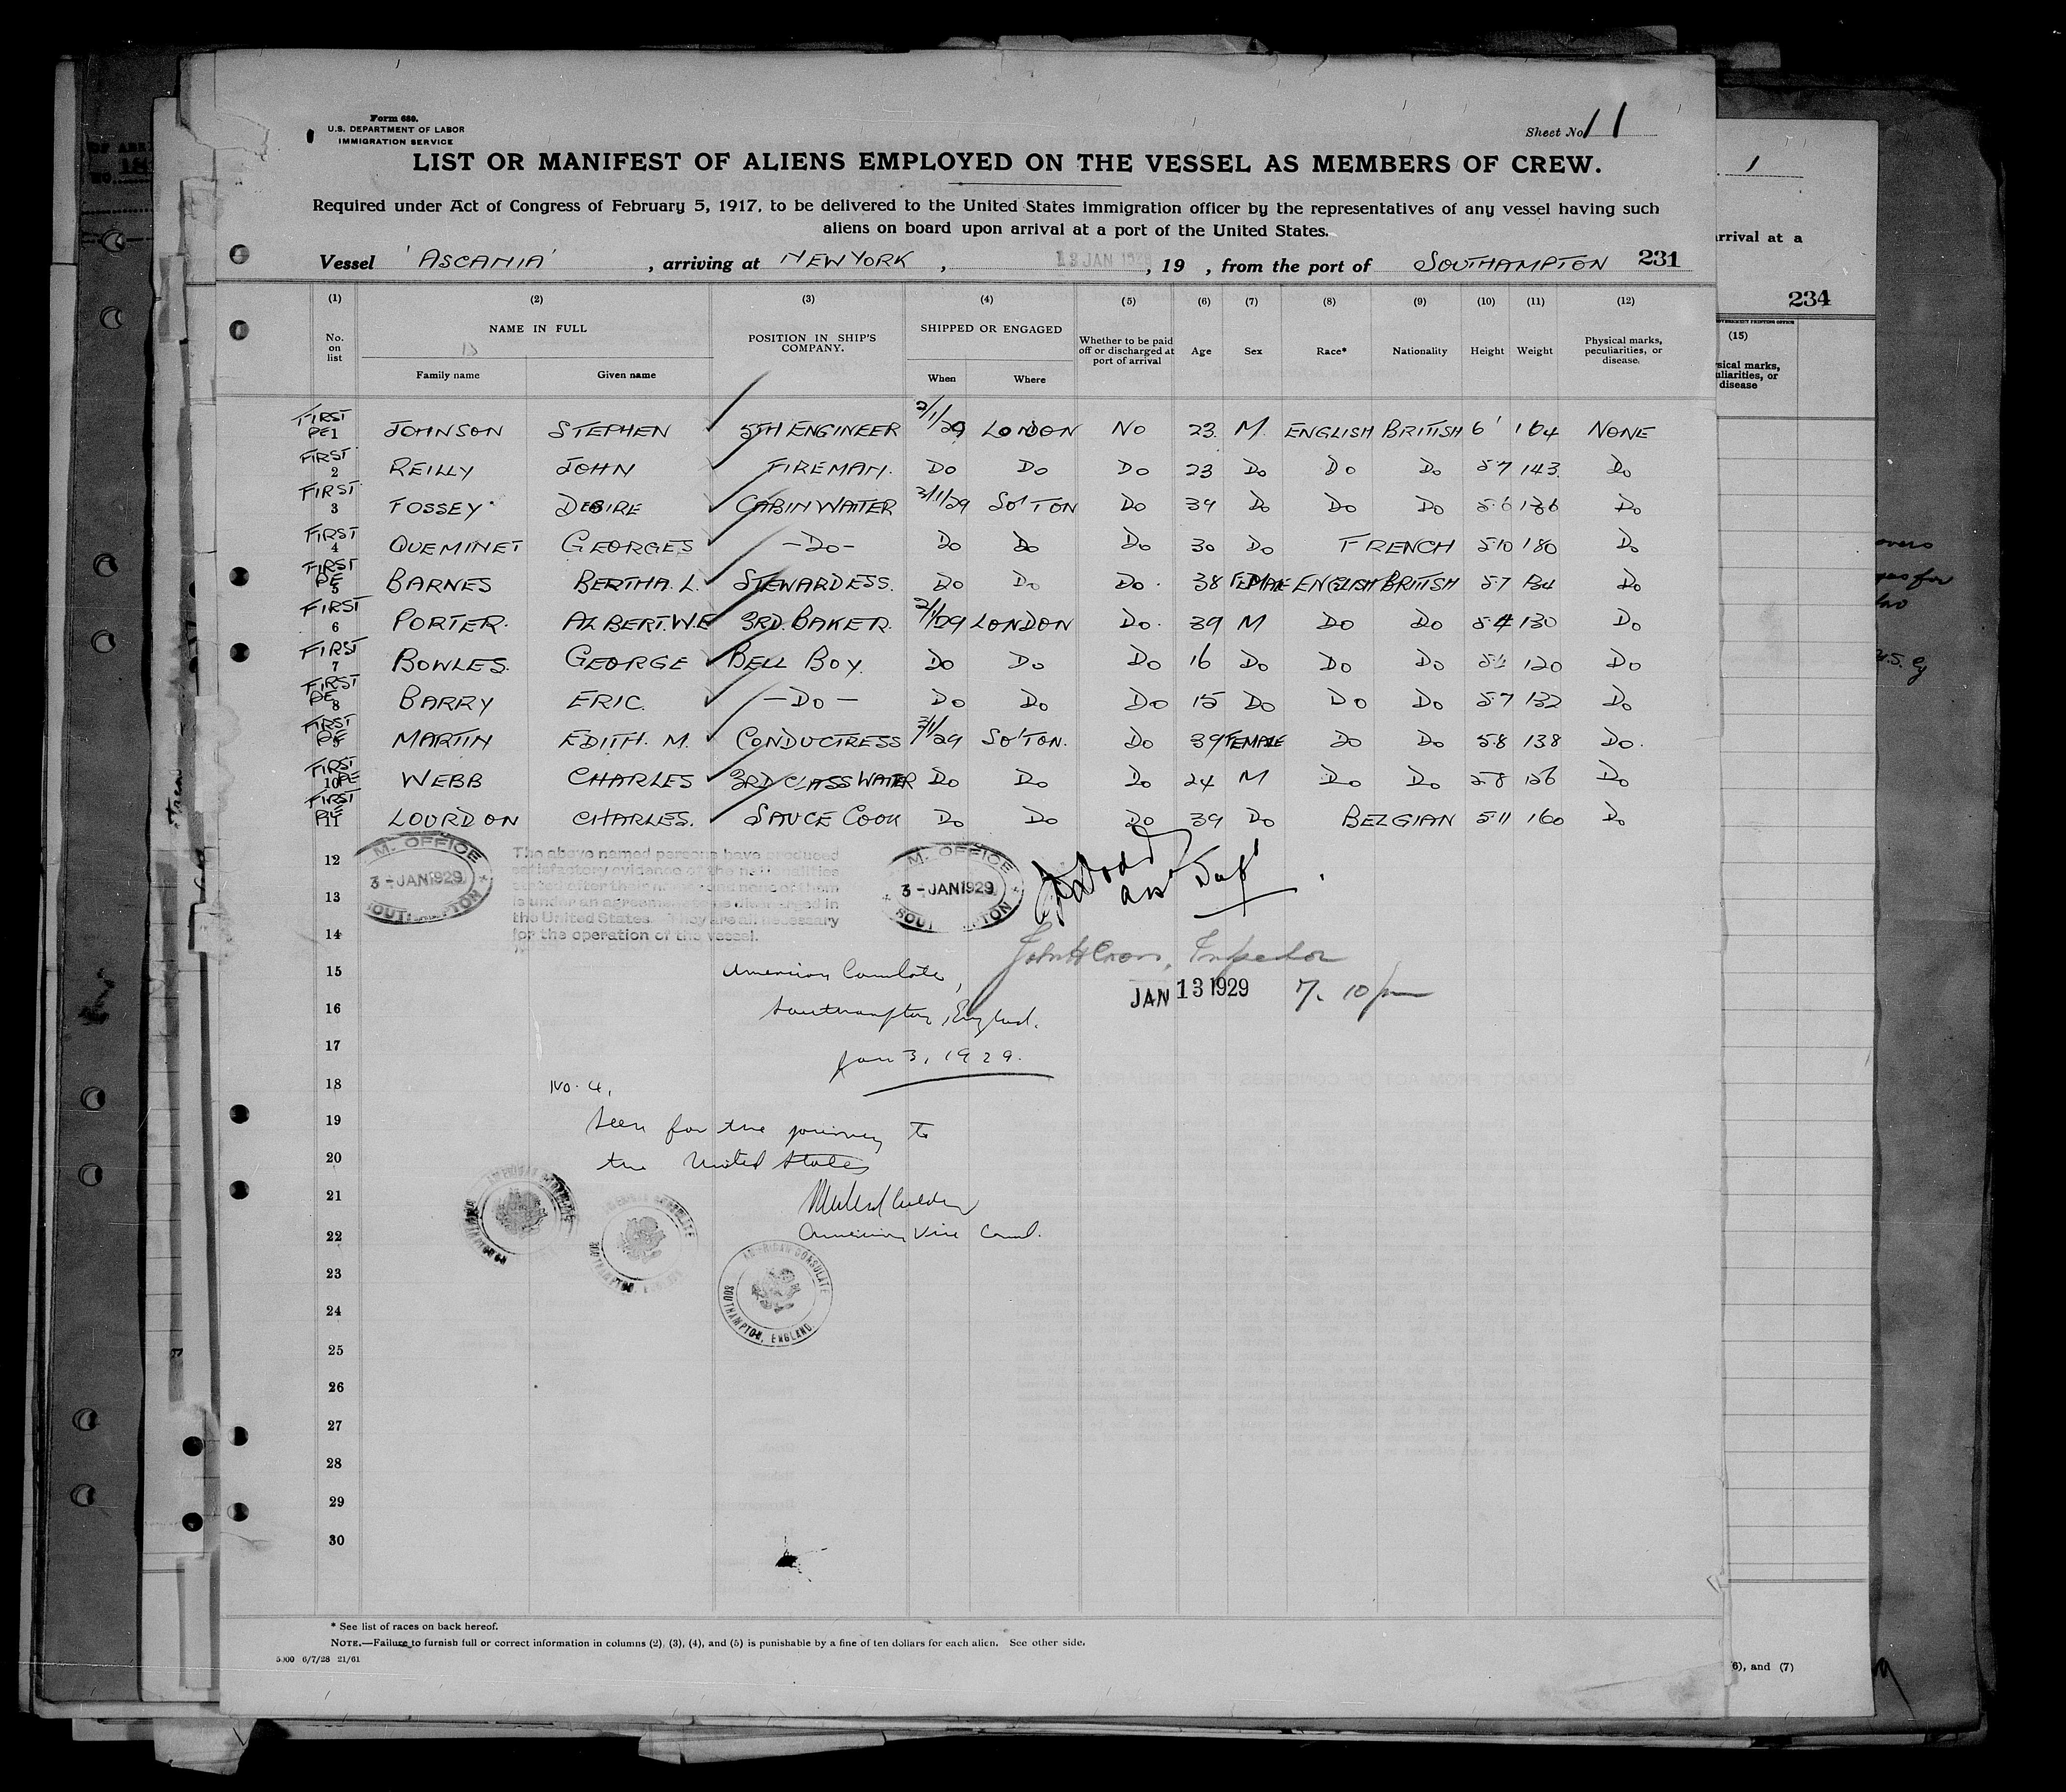 Form 680.
U.S. DEPARTMENT OF LABOR
IMMIGRATION SERVICE
Sheet No. 11
LIST OR MANIFEST OF ALIENS EMPLOYED ON THE VESSEL AS MEMBERS OF CREW.
Required under Act of Congress of February 5, 1917, to be delivered to the United States immigration officer by the representatives of any vessel having such
aliens on board upon arrival at a port of the United States.
Vessel 'ASCANIA', arriving at NEW YORK, 13 JAN 1929, 19 , from the port of SOUTHAMPTON 231
(1) (2) (3) (4) (5) (6) (7) (8) (9) (10) (11) (12)
No. on list NAME IN FULL Family name Given name POSITION IN SHIP'S COMPANY. SHIPPED OR ENGAGED When Where Whether to be paid off or discharged at port of arrival Age Sex Race* Nationality Height Weight Physical marks, peculiarities, or disease.
FIRST PE 1 JOHNSON STEPHEN 5TH ENGINEER 2/1/29 LONDON NO 23 M. ENGLISH BRITISH 6' 164 NONE
FIRST 2 REILLY JOHN FIREMAN. DO DO DO 23 DO DO DO 5.7 143 DO
FIRST 3 FOSSEY DESIRE CABIN WAITER 3/1/29 SO'TON DO 39 DO DO DO 5.6 136 DO
FIRST 4 QUEMINET GEORGES -DO- DO DO DO 30 DO FRENCH 5.10 180 DO
FIRST PE 5 BARNES BERTHA. L. STEWARDESS. DO DO DO. 38 FEMALE ENGLISH BRITISH 5.7 134 DO
FIRST 6 PORTER. ALBERT. W.E 3RD. BAKER. 2/1/29 LONDON DO. 39 M DO DO 5.4 130 DO
FIRST 7 BOWLES. GEORGE BELL BOY. DO DO DO 16 DO DO DO 120 DO
FIRST PE 8 BARRY ERIC. -DO- DO DO DO 15 DO DO DO 5.7 132 DO
FIRST PE 9 MARTIN EDITH. M. CONDUCTRESS 3/1/29 SO'TON. DO 39 FEMALE DO DO 5.8 138 DO.
FIRST PE 10 WEBB CHARLES 3RD CLASS WAITER DO DO DO 24 M DO DO 5.8 DO
FIRST PE 11 LOURDON CHARLES. SAUCE COOK DO DO DO 39 DO BELGIAN 5.11 160 DO
12
M. OFFICE
3-JAN 1929
SOUTHAMPTON
The above named persons have produced
satisfactory evidence of the nationalities
stated after their names and none of them
is under an agreement to be discharged in
the United States. They are all necessary
for the operation of the vessel.
M. OFFICE
3-JAN 1929
13
14
John H Cross, Inspector
JAN 13 1929 7. 10 pm
15 American Consulate,
16 Southampton, England.
17 Jan 3, 1929.
18 No. 4.
19 Seen for the journey to
20 the United States
21
22 American Vice Consul.
AMERICAN CONSULATE
SOUTHAMPTON, ENGLAND.
23
24
25
26
27
28
29
30
* See list of races on back hereof.
NOTE.—Failure to furnish full or correct information in columns (2), (3), (4), and (5) is punishable by a fine of ten dollars for each alien. See other side.
5000 6/7/28 21/61
1
arrival at a
234
(15)
6), and (7)